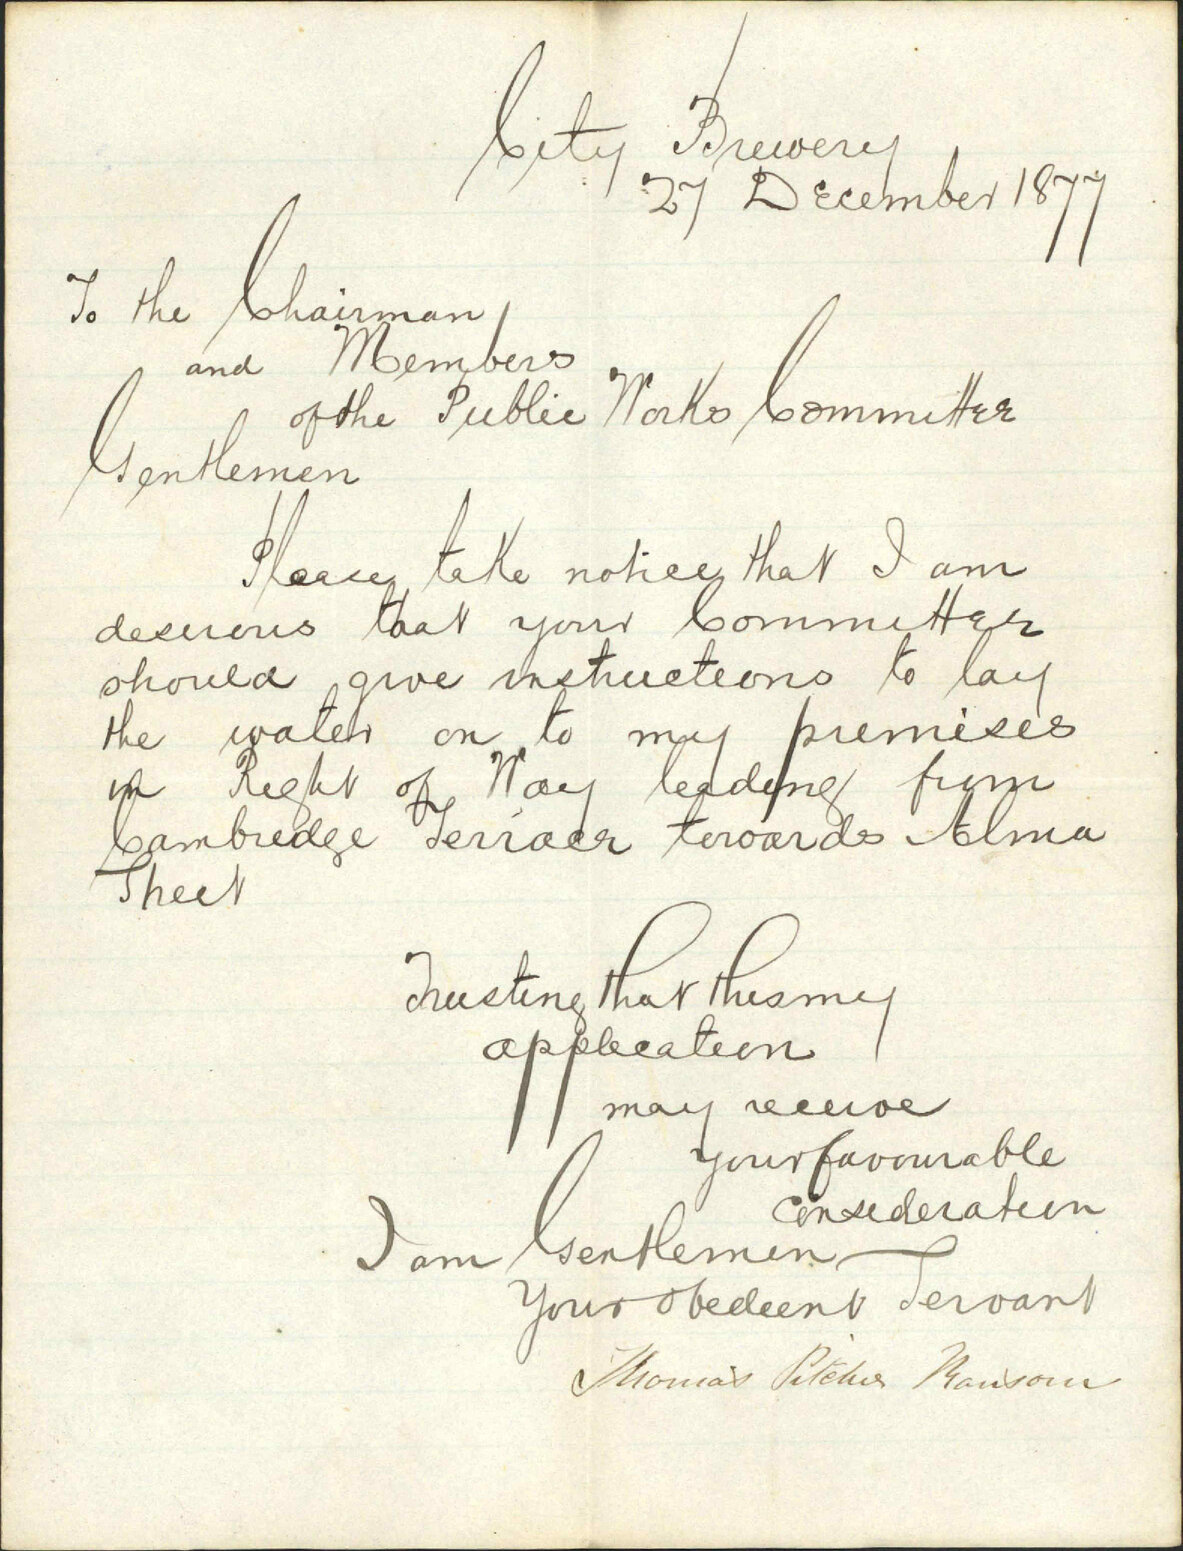 City Brewery
27 December 1877
To the Chairman
and Members
of the Public Works Committee
Gentlemen
Please take notice that I am
desirous that your Committee
should give instructions to lay
the water on to my premises
in Right of Way leading from
Cambridge Terrace towards Alma
Street
Trusting that this my
application
may receive
your favourable
consideration
I am Gentlemen
Your obedient Servant
Thomas Pitcher Ransom